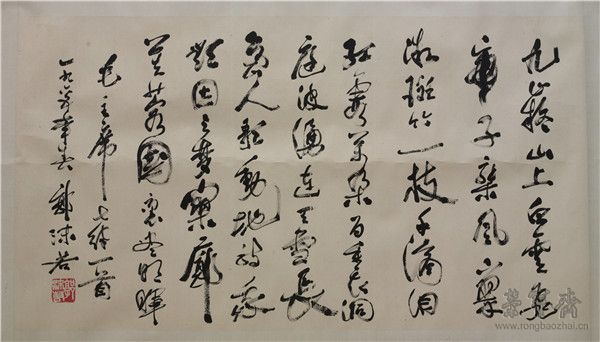 九嶷山上白雲飛
帝子乘風下翠
微斑竹一枝千滴泪
紅霞萬朵百重衣洞
庭波涌連天雪長
島人歌動地詩我
欲因之夢寥廓
芙蓉國裏盡朝暉
毛主席七律一首
一九六年書 郭沫若
榮寶齋
www.rongbaozhai.cn